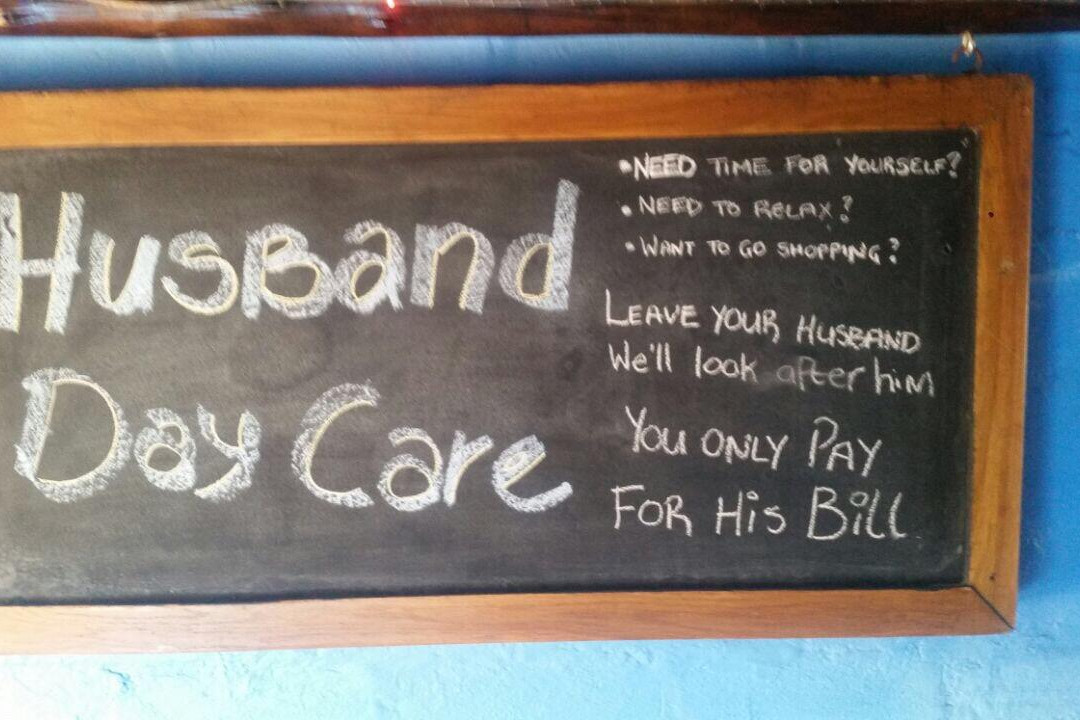 Husband
Day Care
• NEED TIME FOR YOURSELF?
• NEED TO RELAX?
• WANT TO GO SHOPPING?
LEAVE YOUR HUSBAND
We'll look after him
You ONLY PAY
FOR His Bill